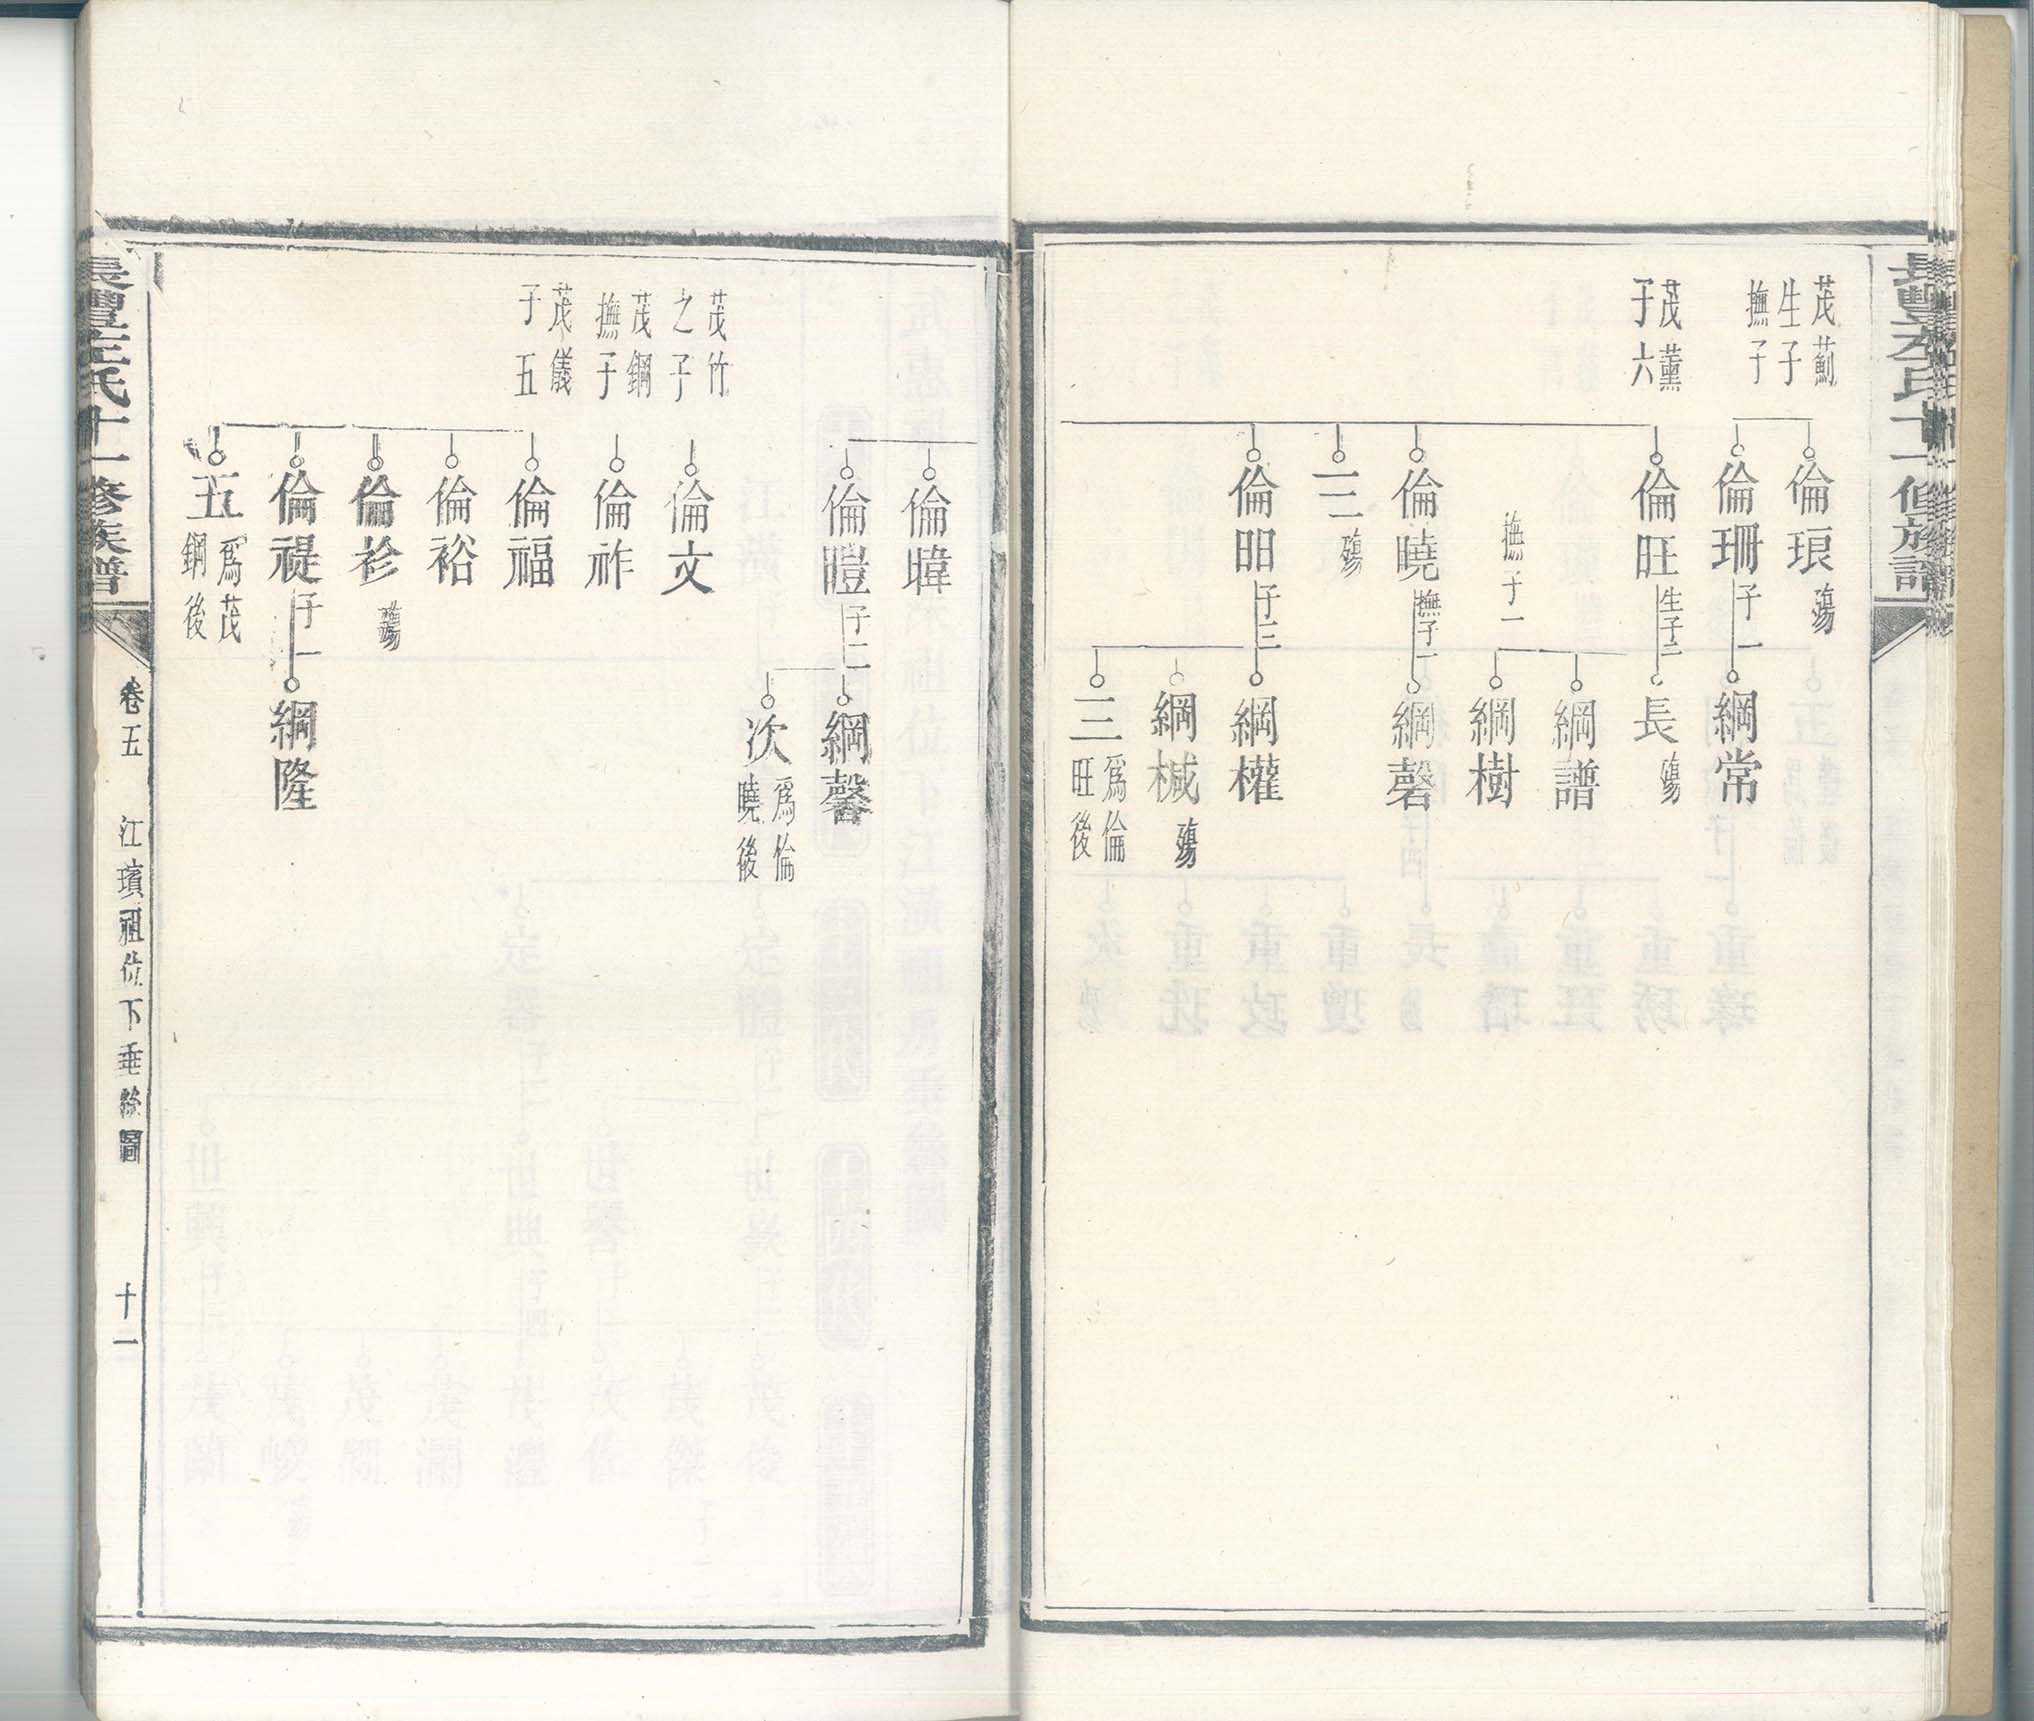 長豐左氏十一修族譜
茂薊
生子
撫子
倫琅
殤
倫珊
子一
綱常
茂薰
子六
倫旺
生子二
長
殤
綱譜
撫子一
綱樹
倫曉
撫子一
綱磬
三
殤
倫昍
子三
綱權
綱椷
殤
三
爲倫
旺後
倫暐
倫暟
子二
綱馨
次
爲倫
曉後
茂竹
之子
倫文
茂鋼
撫子
倫祚
茂儀
子五
倫福
倫裕
倫袗
殤
倫禔
子一
綱隆
五
爲茂
鋼後
長豐左氏十一修族譜
卷五
江璸祖位下垂絲圖
十二